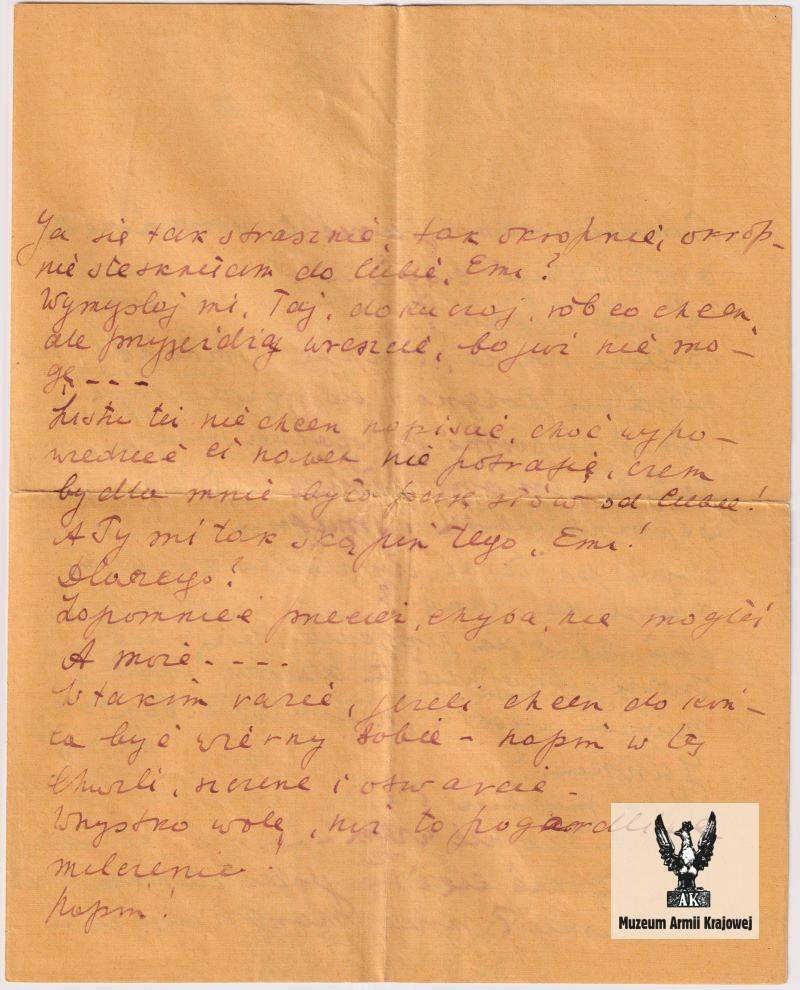 Ja się tak strasznie, tak okropnie, okrop-
nie stęskniłam do Ciebie, Emi!
Wymyślaj mi, łaj, dokuczaj, rób co chcesz,
ale przyjeżdżaj wreszcie, bo już nie mo-
gę - - -
Listu też nie chcesz napisać, choć wypo-
wiedzieć Ci nawet nie potrafię, czem
by dla mnie było parę słów od Ciebie!
A Ty mi tak skąpisz tego, Emi!
Dlaczego?
Zapomnieć przecież, chyba, nie mogłeś
A może - - - -
W takim razie, jeżeli chcesz do koń-
ca być wierny sobie - napisz w tej
chwili, szczerze i otwarcie -
Wszystko wolę, niż to
milczenie!
Napisz!
AK
Muzeum Armii Krajowej